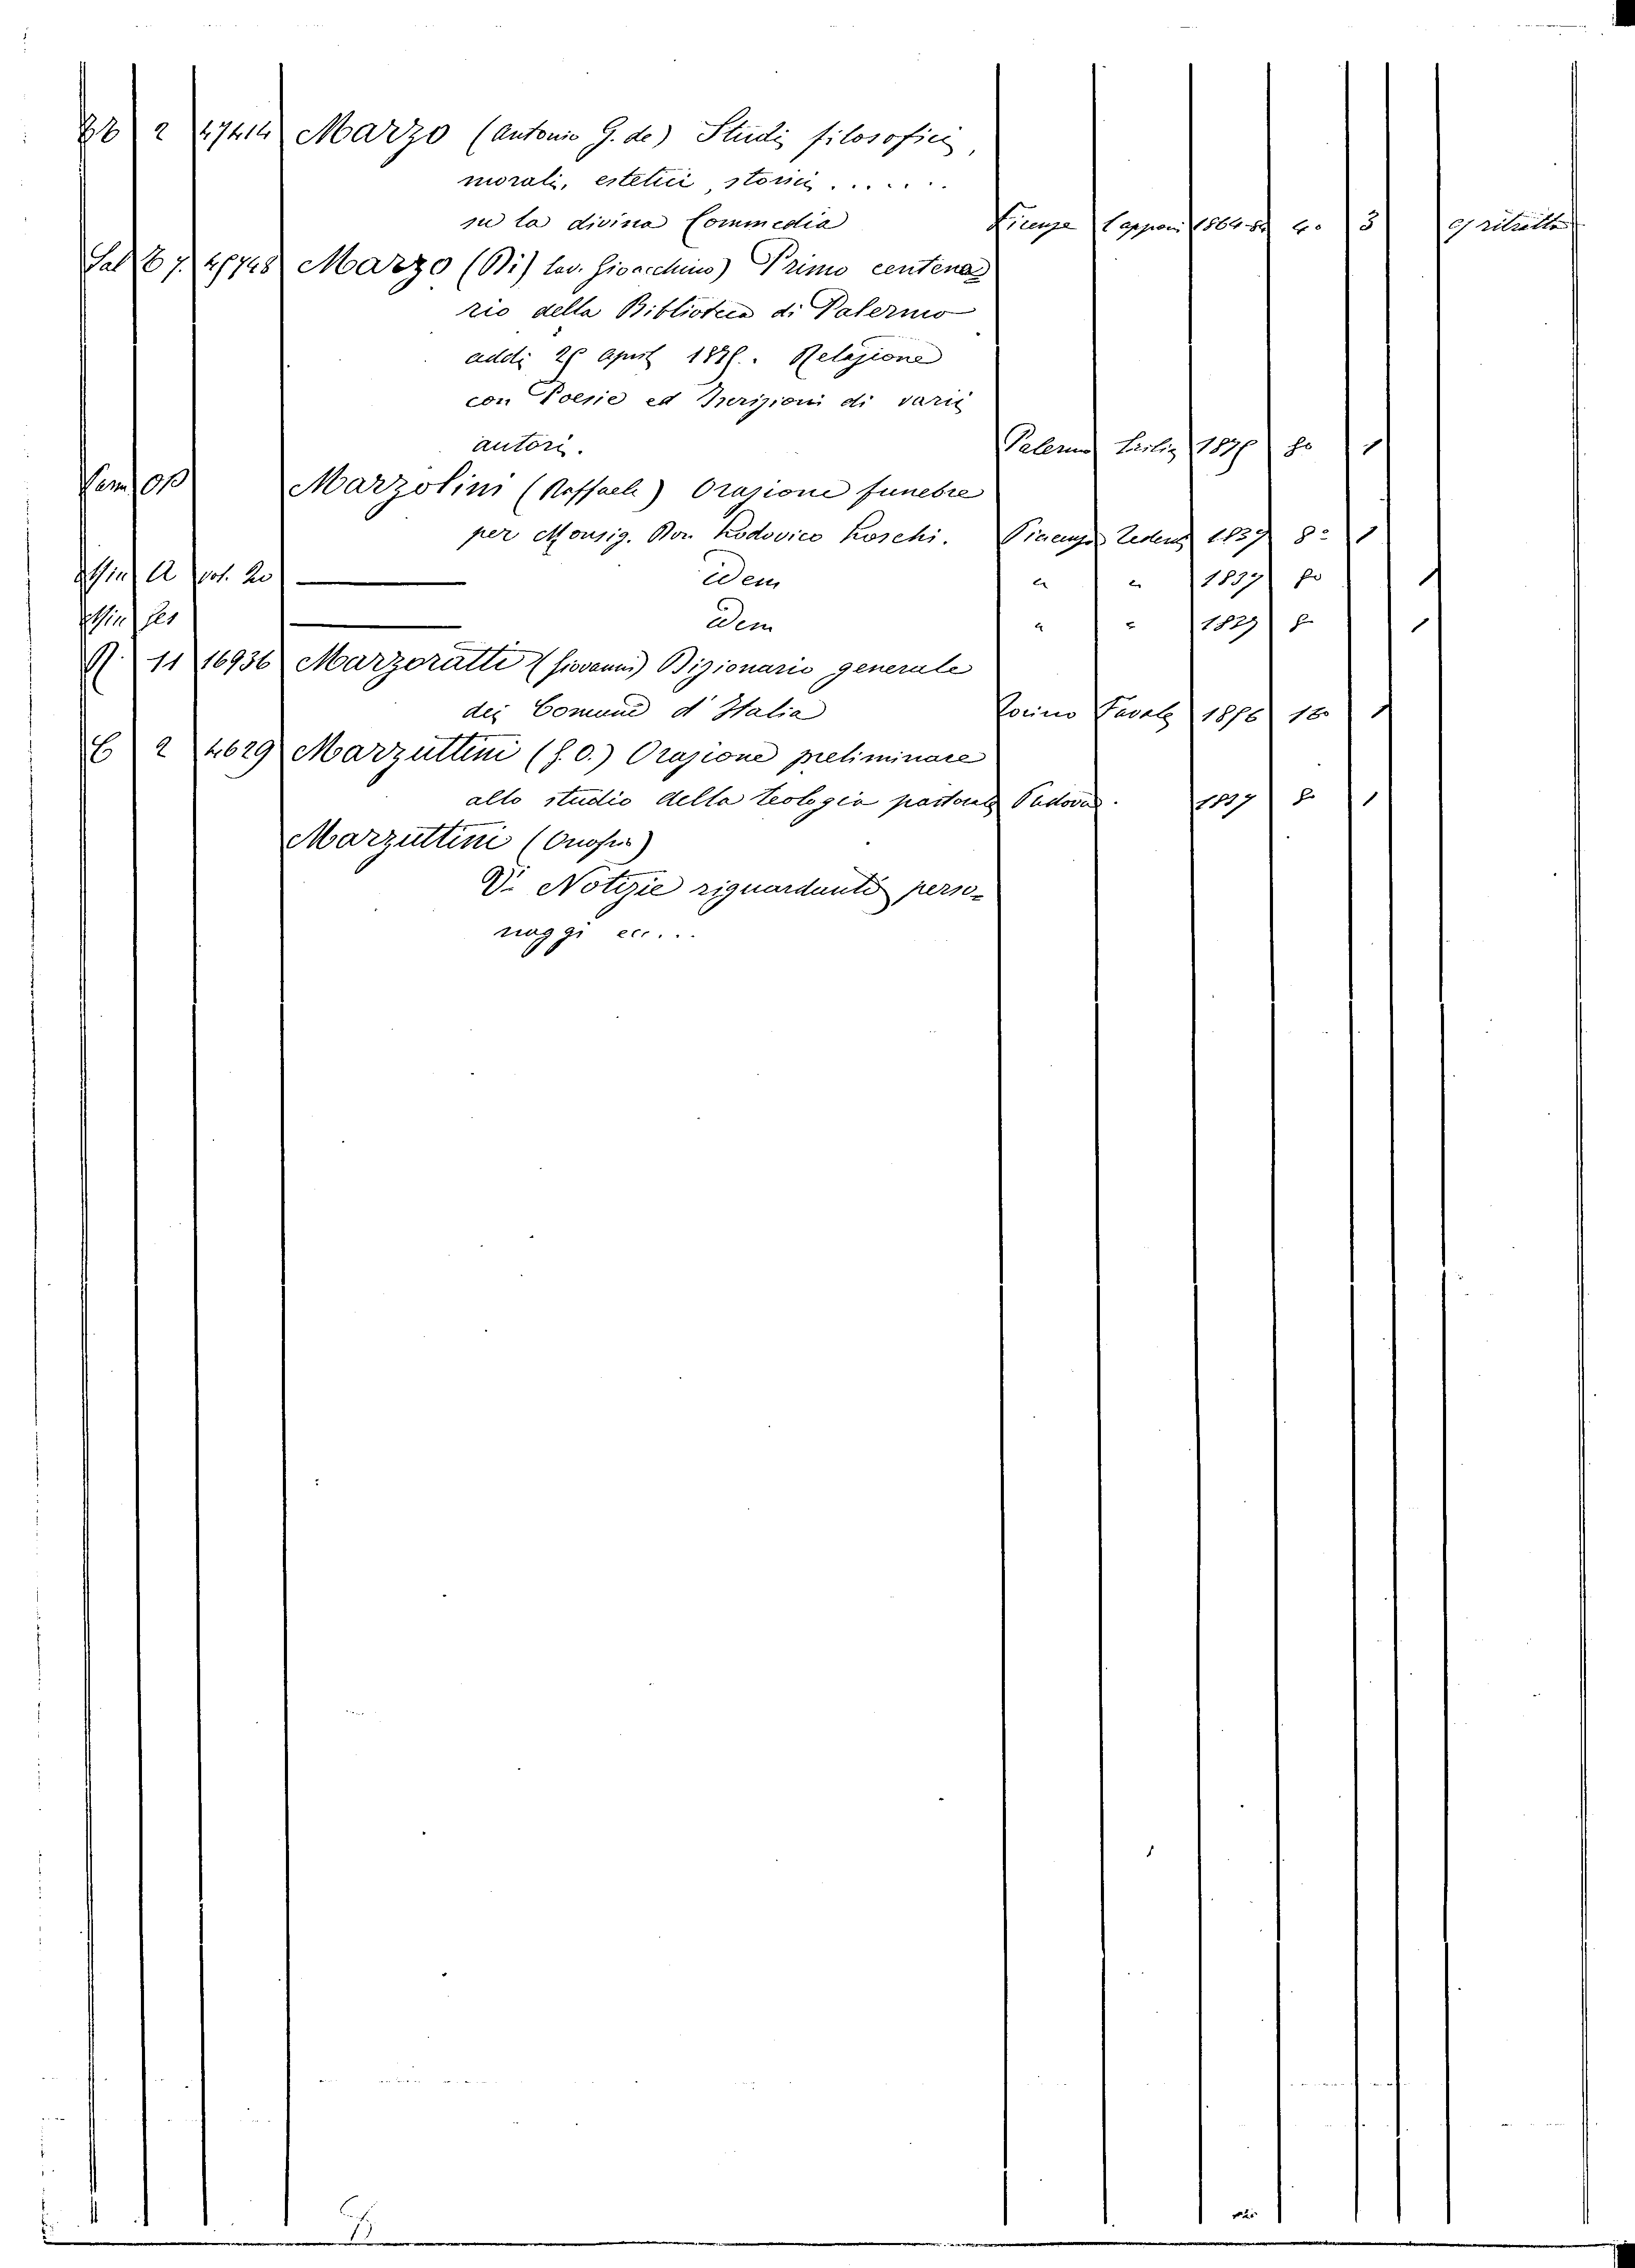 2 47414 Marzo (Antonio G. de) Studi filosofici,
morali, estetici, storici . . . . . .
su la divina Commedia Firenze Capponi 4º 3 ritratto
Sal 6 7. Marzo (Di) Cav. Gioacchino) Primo centena
rio della Biblioteca di Palermo
addi April Relazione
con Poesie ed Iscrizioni di varii
autori. Palermo 8º 1
Marzolini (Raffaele) Orazione funebre
per Monsig. Don Lodovico Loschi. Piacenza Tedeschi 1837 8º 1
Min A vol. 20 ——— idem " " 1837 8º 1
Min ——— idem " " 8º 1
11 16936 Marzoratti (Giovanni) Dizionario generale
dei Comuni d'Italia Torino Favale 18º 1
2 4629 Marzuttini (G. O.) Orazione preliminare
allo studio della teologia pastorale Padova . 8º 1
Marzuttini (Onofrio)
V. Notizie riguardanti perso-
naggi ecc...